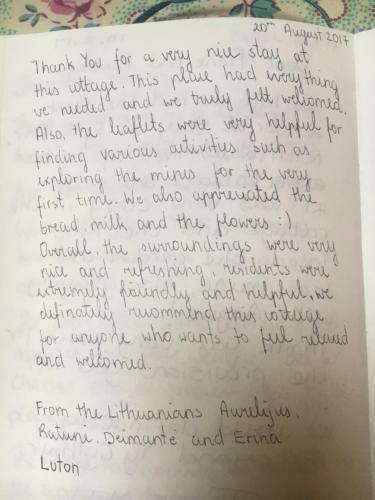 20th August 2017
Thank You for a very nice stay at
this cottage. This place had everything
we needed and we truly felt welcomed.
Also, the leaflets were very helpful for
finding various activities such as
exploring the mines for the very
first time. We also appreciated the
bread, milk and the flowers :)
Overall, the surroundings were very
nice and refreshing, residents were
extremely friendly and helpful, we
definately recommend this cottage
for anyone who wants to feel relaxed
and welcomed.
From the Lithuanians Aurelijus,
Raturie, Deimantė and Erika
Luton